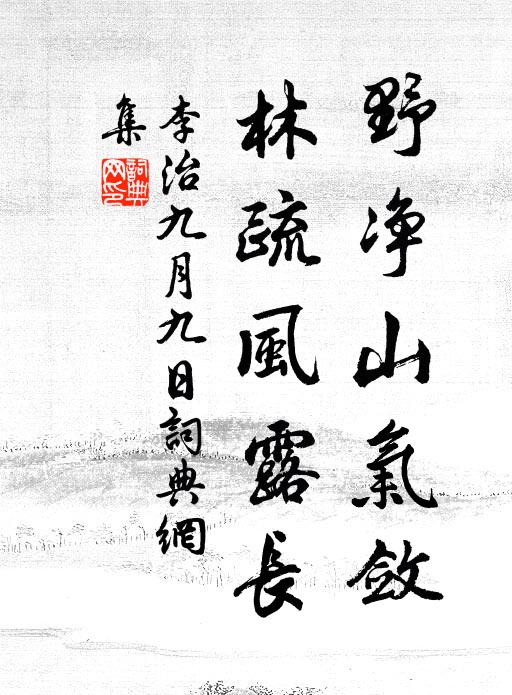 野净山氣斂
林疏風露長
李治九月九日詞典網
集
詞典
网印